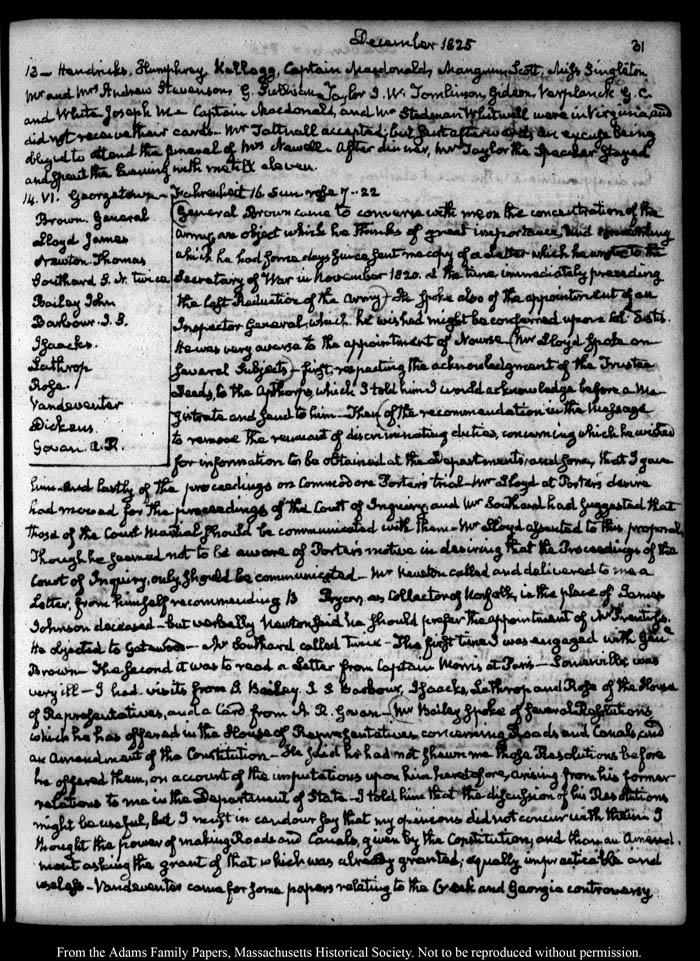 December 1825
31
13 — Hendricks, Humphrey Kellogg, Captain Macdonald, Mangum, Scott, Miss Singleton
Mr and Mrs Andrew Stevenson, G. Taylor J. W. Tomlinson, Gideon, Verplanck G. C.
and White Joseph M— Captain Macdonald, and Mr Stedman Whitwell were in Virginia and
did not receive their cards— Mr Tattnall accepted, but just afterwards an excuse being
obliged to attend the funeral of Mrs Newell— After dinner, Mr Taylor the Speaker stayed
and spent the Evening with me till eleven.
14. VI. Georgetown— Fahrenheit 16. Sun rose 7..22
Brown. General
Lloyd James
Newton. Thomas
Southard S. L. twice
Bailey John
Barbour. J. S.
Isaacks.
Lathrop
Rose.
Vandeventer
Dickens
Govan. A. R.
General Brown came to converse with me on the concentration of the
army, an object which he thinks of great importance, and concerning
which he had some days since sent me copy of a Letter which he wrote to the
Secretary of War in November 1820. at the time immediately preceding
the last Reduction of the Army— He spoke also of the appointment of an
Inspector General, which he wished might be conferred upon Col.
He was very averse to the appointment of Nourse (Mr Lloyd spoke on
several subjects)— first, respecting the acknowledgment of the Trustee
Deeds, to the Apthorps which I told him I would acknowledge before a Ma-
gistrate and send to him— Then of the recommendation in the Message
to remove the remnant of discriminating duties, concerning which he wished
for information to be obtained at the Departments, and some, that I gave
him— And lastly of the proceedings on Commodore Porter's trial— Mr Lloyd at Porter's desire
had moved for the proceedings of the Court of Inquiry, and Mr Southard had suggested that
those of the Court Martial should be communicated with them— Mr Lloyd assented to this proposal,
Though he seemed not to be aware of Porter's motive in desiring that the Proceedings of the
Court of Inquiry, only should be communicated— Mr Newton called and delivered to me a
Letter, from himself recommending B Bryan, as Collector of Norfolk, in the place of James
Johnson deceased— but verbally Newton said he should prefer the appointment of Mr Prentiss.
He objected to — Mr Southard called twice— The first time I was engaged with Genl
Brown— The second it was to read a Letter from Captain Morris at Paris— Somerville was
very ill— I had visits from J. Bailey, J. S. Barbour, Isaacks, Lathrop and Rose of the House
of Representatives, and a Card from A. R. Govan— (Mr Bailey spoke of several Resolutions
which he has offered in the House of Representatives, concerning Roads and Canals, and
an Amendment of the Constitution— He said he had not shewn me those Resolutions before
he offered them, on account of the imputations upon him heretofore, arising from his former
relations to me in the Department of State— I told him that the discussion of his Resolutions
might be useful, but I must in candour say that my opinions did not concur with them I
thought the power of making Roads and Canals, given by the Constitution, and than an Amend-
ment asking the grant of that which was already granted, equally impracticable and
useless— Vandeventer came for some papers relating to the Creek and Georgia controversy
From the Adams Family Papers, Massachusetts Historical Society. Not to be reproduced without permission.